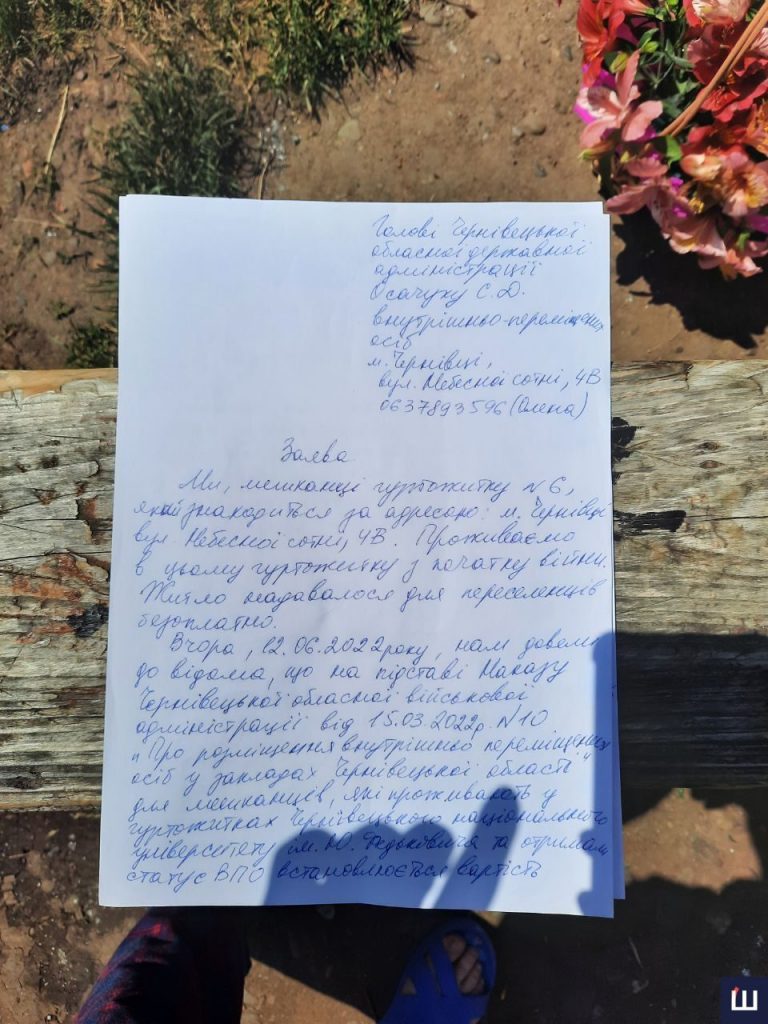 Голові Чернівецької
обласної державної
адміністрації
Осачуку С.Д.
внутрішньо-переміщених
осіб
м. Чернівці,
вул. Небесної сотні, 4В
0637893596 (Олена)
Заява
Ми, мешканці гуртожитку №6,
який знаходиться за адресою: м. Чернівці
вул. Небесної сотні, 4В. Проживаємо
в цьому гуртожитку з початку війни.
Житло надавалося для переселенців
безоплатно.
Вчора, 12.06.2022 року, нам довели
до відома, що на підставі Наказу
Чернівецької обласної військової
адміністрації від 15.03.2022р. №10
„Про розміщення внутрішньо переміщених
осіб у закладах Чернівецької області"
для мешканців, які проживають у
гуртожитках Чернівецького національного
університету ім. Ю. Федьковича та отримали
статус ВПО встановлюється вартість
Ш